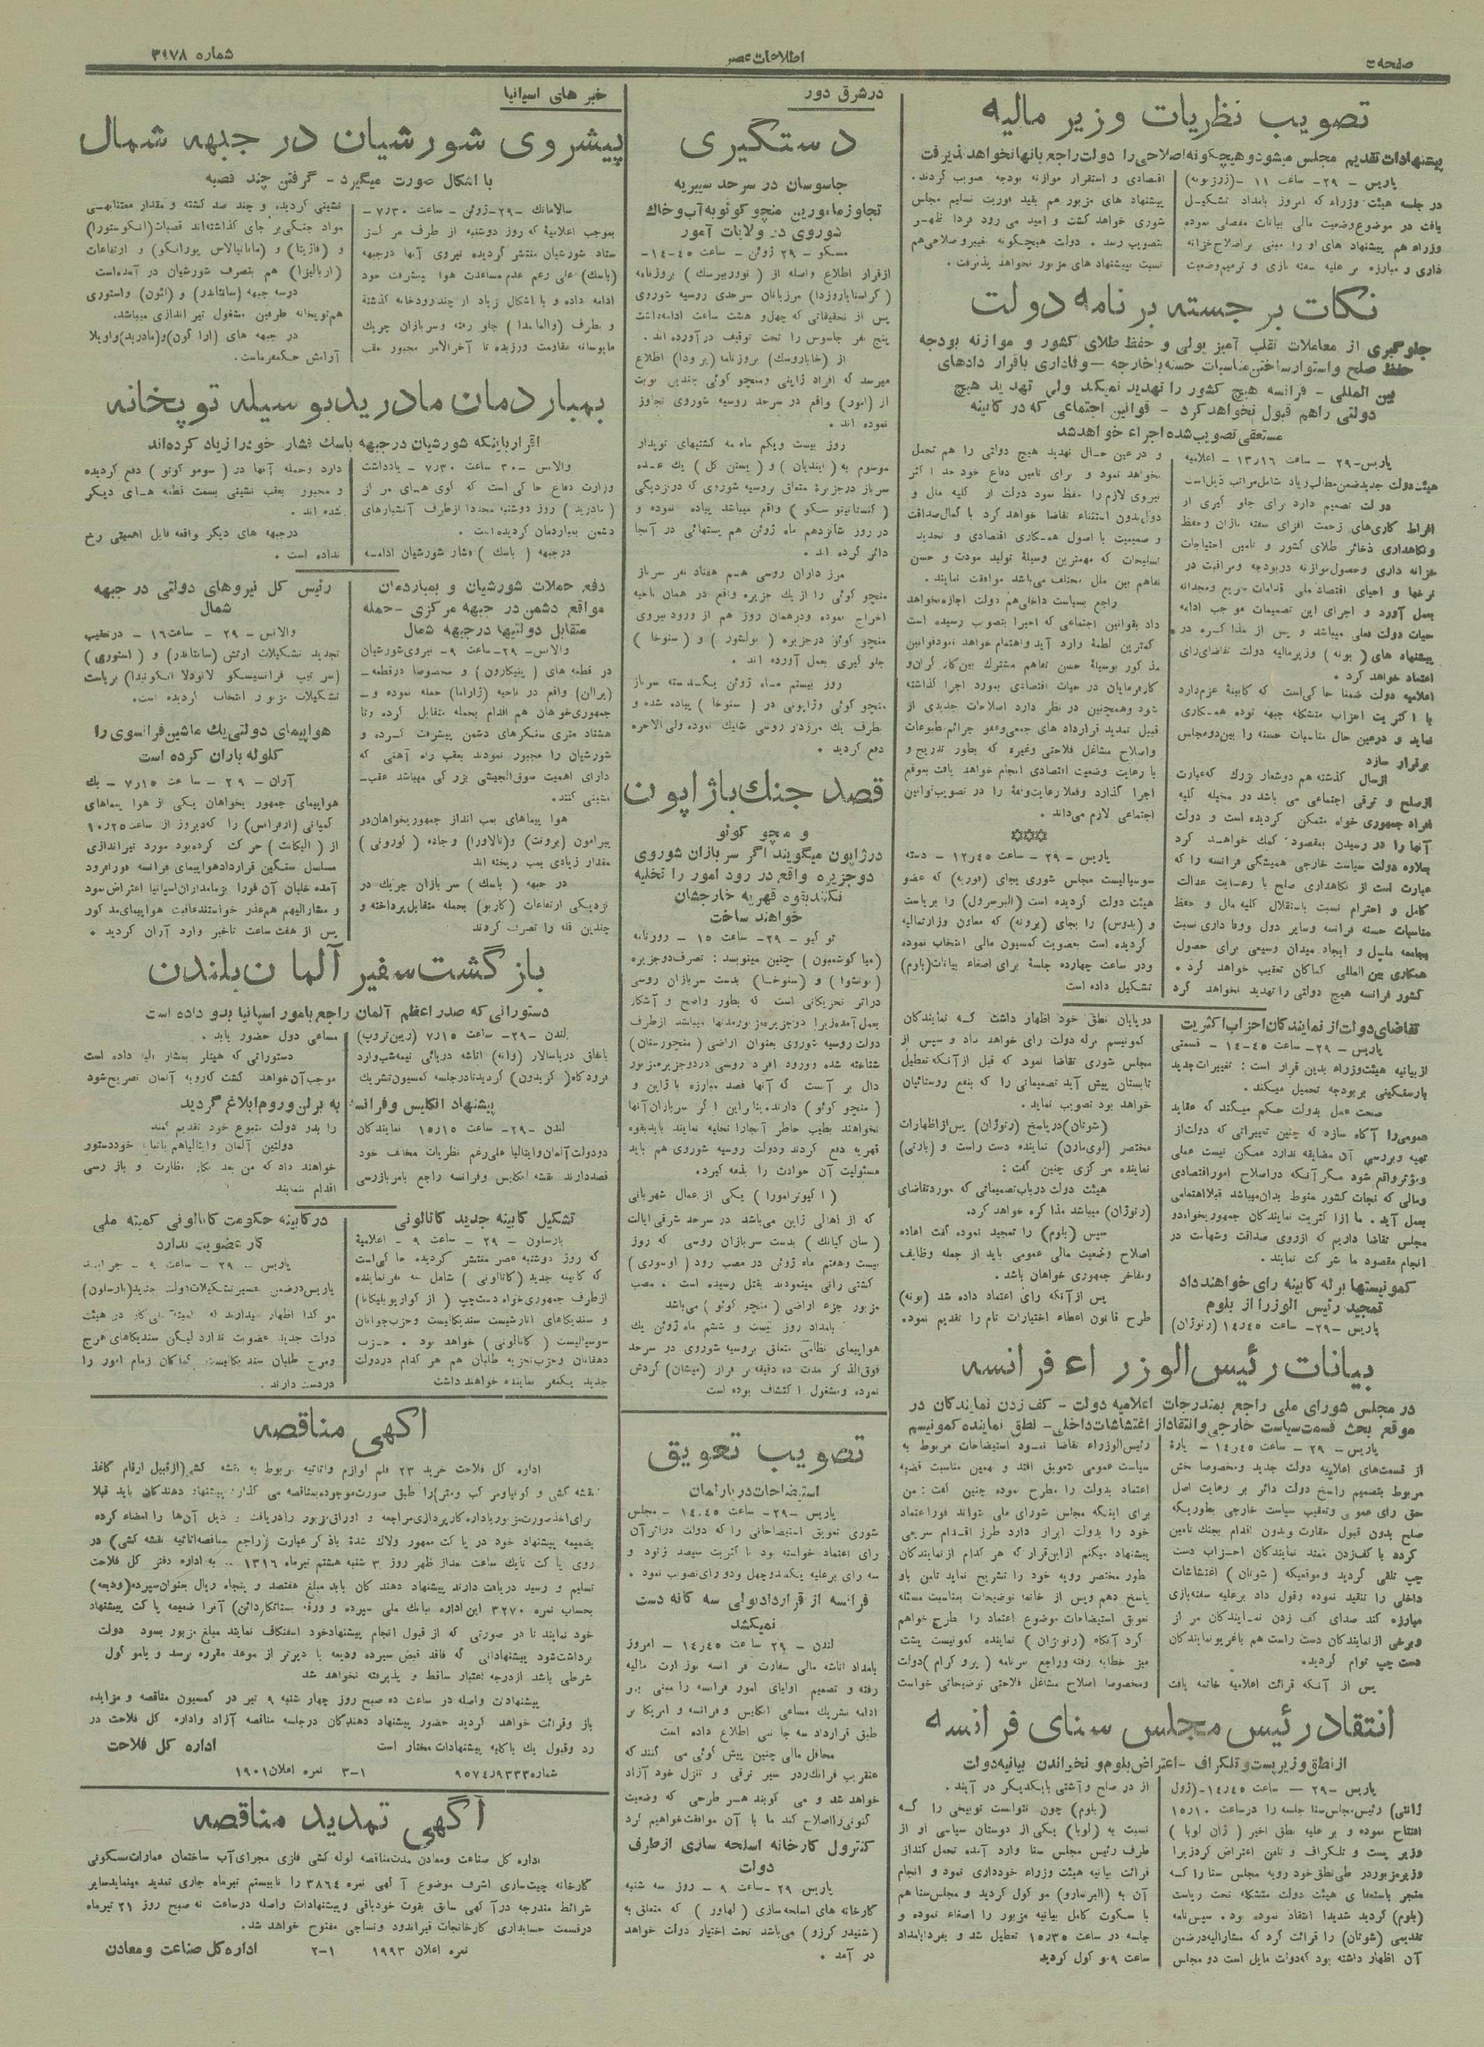 صفحه ۳
اطلاعات عصر
شماره ۳۹۷۸
تصویب نظریات وزیر مالیه
پیشنهادات تقدیم مجلس میشود و هیچگونه اصلاحی را دولت راجع بانها نخواهد پذیرفت
پاریس - ۲۹- ساعت ۱۱ -
در جلسه هیئت وزراء که امروز بامداد تشکیل
یافت در موضوع وضعیت مالی بیانات مفصلی نموده
وزراء هم پیشنهاد های او را مبنی بر اصلاح خزانه
داری و مبارزه بر علیه سفته بازی و ترمیم وضعیت
اقتصادی و استقرار موازنه بودجه تصویب کردند.
پیشنهاد های مزبور هم بقید فوریت تسلیم مجلس
شوری خواهد گشت و امید می رود فردا ظهر
بتصویب رسد . دولت هیچگونه تغییر و اصلاحی هم
نسبت بپیشنهاد های مزبور نخواهد پذیرفت.
نکات برجسته برنامه دولت
جلوگیری از معاملات تقلب آمیز پولی و حفظ طلای کشور و موازنه بودجه
حفظ صلح و استوار ساختن مناسبات حسنه با خارجه - وفاداری باقرار دادهای
بین المللی - فرانسه هیچ کشور را تهدید نمیکند ولی تهدید هیچ
دولتی راهم قبول نخواهد کرد - قوانین اجتماعی که در کابینه
مستعفی تصویب شده اجراء خواهد شد
پاریس-۲۹ - ساعت ۱۳٫۱۶ - اعلامیه
هیئت دولت جدید ضمن مطالب زیاد شامل مراتب ذیل است
دولت تصمیم دارد برای جلو گیری از
و نگاهداری ذخائر طلای کشور و تامین احتیاجات
خزانه داری و حصول موازنه در بودجه و مراقبت در
بعمل آورد و اجرای این تصمیمات موجب ادامه
حیات دولت فعلی میباشد و پس از مذاکره در
پیشنهاد های ( بونه ) وزیر مالیه دولت تقاضای رای
اعتماد خواهد کرد .
اعلامیه دولت ضمنا حاکی است که کابینه عزم دارد
با اکثریت احزاب متشکله جبهه توده همکاری
نماید و در عین حال مناسبات حسنه را بین دو مجلس
برقرار سازد
از سال گذشته هم دو شعار بزرگ که عبارت
از صلح و ترقی اجتماعی می باشد در مخیله کلیه
افراد جمهوری خواه متمکن گردیده است و دولت
آنها را در رسیدن بمقصود کمک خواهد کرد
بعلاوه دولت سیاست خارجی همیشگی فرانسه را که
عبارت است از نگاهداری صلح با رعایت عدالت
کامل و احترام نسبت باستقلال کلیه مال و حفظ
مناسبات حسنه فرانسه و سایر دول و وفاداری نسبت
بجامعه ملل و ایجاد میدان وسیعی برای حصول
همکاری بین المللی کماکان تعقیب خواهد کرد .
کشور فرانسه هیچ دولتی را تهدید نخواهد کرد
و در عین حال تهدید هیچ دولتی را هم تحمل
نخواهد نمود و برای تامین دفاع خود حد اکثر
نیروی لازم را حفظ نمود دولت از کلیه ملل و
دول بدون استثناء تقاضا خواهد کرد با کمال صداقت
و صمیمیت با اصول همکاری اقتصادی و تحدید
تسلیحات که مهمترین وسیله تولید مودت و حسن
تفاهم بین ملل مختلف می باشد موافقت نمایند .
راجع بسیاست داخلی هم دولت اجازه نخواهد
داد بقوانین اجتماعی که اخیرا بتصویب رسیده است
کمترین لطمه وارد آید و اهتمام خواهد نمود قوانین
مذکور بوسیله حسن تفاهم مشترک بین کارگران و
کارفرمایان در حیات اقتصادی بمورد اجرا گذاشته
شود و همچنین در نظر دارد اصلاحات جدیدی از
قبیل تمدید قرارداد های جمعی و عفو جرائم مطبوعات
و اصلاح مشاغل فلاحتی وغیره که بطور تدریج و
با رعایت وضعیت اقتصادی انجام خواهد یافت بموقع
اجتماعی لازم می داند .
***
پاریس - ۲۹ - ساعت ۱۲٫۴۵ - دسته
سوسیالیست مجلس شوری بجای (فوریه) که عضو
هیئت دولت گردیده است (البرسرول) را بریاست
و (بدوس) را بجای (برونه) که معاون وزارتمالیه
گردیده است بعضویت کمسیون مالی انتخاب نموده
و در ساعت چهارده جلسه برای اصغاء بیانات (بلوم)
تشکیل داده است
تقاضای دولت از نمایندگان احزاب اکثریت
پاریس -۲۹- ساعت ۱۴٫۴۵ - قسمتی
از بیانیه هیئت وزراء بدین قرار است : تغییرات جدید
بار سنگینی بر بودجه تحمیل میکند .
صحت عمل بدولت حکم میکند که عقاید
عمومی را آگاه سازد که چنین تغییراتی که دولت از
تهیه و بررسی آن مضایقه ندارد ممکن نیست عملی
و موثر واقع شود مگر آنکه در اصلاح امور اقتصادی
و مالی که نجات کشور منوط بدان میباشد قبلا اهتمامی
بعمل آید . ما از اکثریت نمایندگان جمهوریخواه دو
مجلس تقاضا داریم که از روی صداقت و شهامت در
انجام مقصود ما شرکت نمایند .
کمونیستها بر له کابینه رای خواهند داد
تمجید رئیس الوزرا از بلوم
پاریس -۲۹- ساعت ۱۴٫۴۵ (رنوژان)
در پایان نطق خود اظهار داشت که نمایندگان
کمونیسم بر له دولت رای خواهد داد و سپس از
مجلس شوری تقاضا نمود که قبل از آنکه تعطیل
تابستان پیش آید تصمیماتی را که بنفع روستائیان
خواهد بود تصویب نماید .
(شوتان) در پاسخ (رنوژان) پس از اظهارات
مختصر (لوی مارن) نماینده دست راست و (بارتی)
نماینده مرکزی چنین گفت :
هیئت دولت در باب تصمیماتی که مورد تقاضای
(رنوژان) میباشد مذاکره خواهد کرد.
سپس (بلوم) را تمجید نموده گفت اعاده
اصلاح وضعیت مالی عمومی باید از جمله وظایف
و مفاخر جمهوری خواهان باشد .
پس از آنکه رای اعتماد داده شد (بونه)
طرح قانون اعطاء اختیارات تام را تقدیم نمود.
بیانات رئیس الوزراء فرانسه
در مجلس شورای ملی راجع بمندرجات اعلامیه دولت - کف زدن نمایندگان در
موقع بحث قسمت سیاست خارجی و انتقاد از اغتشاشات داخلی - نطق نماینده کمونیسم
پاریس -۲۹ - ساعت ۱۴٫۴۵ - پارهٔ
از قسمت‌های اعلامیه دولت جدید و مخصوصا بخش
مربوط بتصمیم راسخ دولت دائر بر رعایت اصل
حق رای عمومی و تعقیب سیاست خارجی بطوریکه
صلح بدون قبول حقارت و بدون اقدام بجنگ تامین
گردد با کف زدن ممتد نمایندگان احزاب دست
چپ تلقی گردید و موقعیکه (شوتان) اغتشاشات
داخلی را تنقید نموده و قول داد بر علیه سفته بازی
مبارزه کند صدای کف زدن نمایندگان مرکز
و برخی از نمایندگان دست راست هم با غریو نمایندگان
دست چپ توام گردید.
پس از آنکه قرائت اعلامیه خاتمه یافت
رئیس الوزراء تقاضا نمود استیضاحات مربوط به
سیاست عمومی بتعویق افتد و بهمین مناسبت قضیه
اعتماد بدولت را مطرح نموده چنین گفت : من
برای اینکه مجلس شورای ملی بتواند فورا اعتماد
خود را بدولت ابراز دارد طرز اقدام سریعی
پیشنهاد میکنم از اینقرار که هر کدام از نمایندگان
بطور مختصر رویه خود را تشریح نماید تا من باو
پاسخ دهم و پس از خاتمه توضیحات بمناسبت مسئله
تعویق استیضاحات موضوع اعتماد را طرح خواهم
کرد آنگاه (رنوژان) نماینده کمونیست پشت
میز خطابه رفته و راجع ببرنامه ( پروگرام ) دولت
و مخصوصا اصلاح مشاغل فلاحتی توضیحاتی خواست
انتقاد رئیس مجلس سنای فرانسه
از نطق وزیر پست و تلگراف - اعتراض بلوم و نخواندن بیانیه دولت
پاریس -۲۹ - ساعت ۱۴٫۴۵-(ژول
ژانتی) رئیس مجلس سنا جلسه را در ساعت ۱۵٫۱۰
افتتاح نموده و بر علیه نطق اخیر ( ژان لوبا )
وزیر پست و تلگراف و تلفن اعتراض کرد زیرا
وزیر مزبور در طی نطق خود رویه مجلس سنا را که
منجر باستعفای هیئت دولت متشکله تحت ریاست
(بلوم) گردید شدیدا انتقاد نموده بود . سپس نامه
تقدیمی (شوتان) را قرائت کرد که مشارالیه در ضمن
آن اظهار داشته بود که دولت مایل است دو مجلس
از در صلح و آشتی با یکدیگر در آیند .
(بلوم) چون نتوانست توبیخی را که
نسبت به (لوبا) یکی از دوستان سیاسی او از
طرف رئیس مجلس سنا وارد آمده تحمل کند از
قرائت بیانیه هیئت وزراء خودداری نمود و انجام
آن به (البرسارو) موکول گردید و مجلس سنا هم
با سکوت کامل بیانیه مزبور را اصغاء نموده و
جلسه در ساعت ۱۵٫۳۵ تعطیل شد و بفردا بامداد
ساعت ۹ موکول گردید
در شرق دور
دستگیری
جاسوسان در سرحد سیبریه
تجاوز مامورین منچوکوئو به آب و خاک
شوروی در ولایات آمور
مسکو - ۲۹ ژوئن - ساعت ۱۴٫۴۵-
از قرار اطلاع واصله از ( نووربیرسک ) بروزنامه
( کراسنایا زوزدا ) مرزبانان سرحدی روسیه شوروی
پس از تحقیقاتی که چهل و هشت ساعت ادامه داشت
پنج نفر جاسوس را تحت توقیف در آورده اند .
از (خاباروسک) بروزنامه (پرودا) اطلاع
میرسد که افراد ژاپنی و منچو کوئی چندین نوبت
از (امور) واقع در سرحد روسیه شوروی تجاوز
نموده اند .
روز بیست ویکم ماه مه کشتیهای توپدار
سرباز در جزیره متعلق بروسیه شوروی که در نزدیکی
( کنستانتینوسکو ) واقع میباشد پیاده نموده و
در روز شانزدهم ماه ژوئن هم پستهائی در آنجا
دائر کرده اند .
مرز داران روسی هم هفتاد نفر سرباز
منچو کوئی را از یک جزیره واقع در همان ناحیه
اخراج نموده و در همان روز هم از ورود نیروی
منچو کوئو در جزیره ( بولشوز ) و ( سنوخا )
جلو گیری بعمل آورده اند .
روز بیستم ماه ژوئن یکدسته سرباز
منچو کوئی و ژاپونی در ( سنوخا ) پیاده شده و
بطرف یک مرزدار روسی شلیک نموده ولی بالاخره
دفع گردید .
قصد جنگ باژاپون
و منچو کوئو
در ژاپون میگویند اگر سربازان شوروی
دو جزیره واقع در رود امور را تخلیه
نکنند بقوه قهریه خارجشان
خواهند ساخت
توکیو -۲۹- ساعت ۱۵ - روزنامه
(میاکوشیمبون) چنین مینویسد : تصرف دو جزیره
(بولشوا) و (سنوخا) بدست سربازان روسی
در اثر تحریکاتی است که بطور واضح و آشکار
بعمل آمده زیرا دو جزیره مزبور مدتها میباشد از طرف
دولت روسیه شوروی بعنوان اراضی (منچورستان)
شناخته شده و ورود افراد روسی در دو جزیره مزبور
دال بر آنست که آنها قصد مبارزه با ژاپن و
(منچو کوئو) دارند. بنابراین اگر سربازان آنها
نخواهند بطیب خاطر آنجا را تخلیه نمایند باید بقوه
قهریه دفع گردند و دولت روسیه شوروی هم باید
مسئولیت آن حوادث را بذمه گیرد.
( اکیوتر امورا ) یکی از عمال شهربانی
که از اهالی ژاپن می‌باشد در سرحد شرقی ایالت
( سان کیانک ) بدست سربازان روسی که روز
بیست وهفتم ماه ژوئن در مصب رود ( اوسوری )
کشتی رانی مینمودند بقتل رسیده است . مصب
مزبور جزء اراضی ( منچو کوئو ) می‌باشد
بامداد روز بیست و ششم ماه ژوئن یک
هواپیمای نظامی متعلق بروسیه شوروی در سرحد
فوق الذکر مدت ده دقیقه بر فراز (میشان) گردش
نموده و مشغول اکتشاف بوده است
تصویب تعویق
استیضاحات در پارلمان
پاریس -۲۹- ساعت ۱۴٫۴۵ - مجلس
شوری تعویق استیضاحاتی را که دولت در اثر آن
رای اعتماد خواسته بود با کثریت سیصد و نود و
سه رای بر علیه یکصد و چهل و دو رای تصویب نمود .
فرانسه از قرارداد پولی سه گانه دست
نمیکشد
لندن - ۲۹ ساعت ۱۴٫۴۵ - امروز
بامداد اتاشه مالی سفارت فرانسه بوزارت مالیه
رفته و تصمیم اولیای امور فرانسه را مبنی بر
ادامه تشریک مساعی انگلیس و فرانسه و امریکا بر
طبق قرارداد سه جانبی اطلاع داده است
محافل مالی چنین پیش گوئی می کنند که
عنقریب فرانک در سیر ترقی و تنزل خود آزاد
خواهد شد و می گویند هر طرحی که وضعیت
کنونی را اصلاح کند ما با آن موافقت خواهیم کرد
کنترول کارخانه اسلحه سازی از طرف
دولت
پاریس ۲۹ -ساعت ۹ - روز سه شنبه
کارخانه های اسلحه سازی ( لهاور ) که متعلق به
(شنیدر کرزو) می‌باشد تحت اختیار دولت خواهد
در آمد .
خبر های اسپانیا
پیشروی شورشیان در جبهه شمال
با اشکال صورت میگیرد - گرفتن چند قصبه
سالامانک -۲۹-ژوئن - ساعت ۷٫۳۰-
بموجب اعلامیهٔ که روز دوشنبه از طرف مرکز
ستاد شورشیان منتشر گردیده نیروی آنها در جبهه
(باسک) علی رغم عدم مساعدت هوا پیشرفت خود
ادامه داده و با اشکال زیاد از چند رودخانه گذشته
و بطرف (والماسدا) جلو رفته و سربازان چریک
مایوسانه مقاومت ورزیده تا آخر الامر مجبور بعقب
نشینی گردیده و چند صد کشته و مقدار معتنابهی
مواد جنگی بر جای گذاشته‌اند قصبات (انکوستورا)
و (فازیتا) و (ماتانیالاس یورانکو) و ارتفاعات
(ارپالیزا) هم بتصرف شورشیان در آمده است
در سه جبهه (سانتاندر) و (لئون) و استوری
هم توپخانه طرفین مشغول تیر اندازی میباشد.
در جبهه های (اراگون) و(مادرید) و اویلا
آرامش حکمفرماست.
بمباردمان مادرید بوسیله توپخانه
اقرار باینکه شورشیان در جبهه باسک فشار خود را زیاد کرده اند
والانس - ۳۰ ساعت ۷٫۳۰ - یادداشت
وزارت دفاع حاکی است که توپ های مرکز
(مادرید) روز دوشنبه مجددا از طرف آتشبارهای
دشمن بمباردمان گردیده است .
در جبهه ( باسک ) فشار شورشیان ادامه
دارد و حمله آنها در ( سومو کوتو ) دفع گردیده
و مجبور بعقب نشینی بسمت قطعه های دیگر
شده اند .
در جبهه های دیگر واقعه قابل اهمیتی رخ
نداده است .
دفع حملات شورشیان و بمباردمان
مواقع دشمن در جبهه مرکزی -حمله
متقابل دولتیها در جبهه شمال
والانس -۲۹- ساعت ۹ - نیروی شورشیان
در قطعه های (پینیکارون) و مخصوصا در قطعه
(پرآلن) واقع در ناحیه (ژاراما) حمله نموده و
جمهوری خواهان هم اقدام بحمله متقابل کرده و تا
هشتاد متری سنگرهای دشمن پیشرفت کرده و
شورشیان را مجبور نمودند بعقب راه آهنی که
دارای اهمیت سوق الجیشی بزرگی میباشد عقب
نشینی کنند.
هوا پیماهای بمب انداز جمهوریخواهان در
پیرامون (بروفت) و(نالاورا) و جاده ( لورونی )
مقدار زیادی بمب ریخته اند
در جبهه ( باسک ) سربازان چریک در
نزدیکی ارتفاعات (کاربو) بحمله متقابل پرداخته و
چندین قله را تصرف کردند
رئیس کل نیروهای دولتی در جبهه
شمال
والانس - ۲۹ - ساعت ۱۶ - در تعقیب
تجدید تشکیلات ارتش (سانتاندر) و ( استوری )
(سرتیپ فرانسیسکو لانودلا انکوندیا) بریاست
تشکیلات مزبور انتخاب گردیده است.
هواپیمای دولتی یک ماشین فرانسوی را
گلوله باران کرده است
آران - ۲۹ - ساعت ۷٫۱۵ - یک
هواپیمای جمهور یخواهان یکی از هوا پیماهای
کمپانی (ارفرانس) را که دیروز از ساعت ۱۰٫۲۵
از (الیکانت) حرکت کرده بود مورد تیر اندازی
مسلسل سنگین قرارداد هواپیمای فرانسه فورا فرود
آمده خلبان آن فورا بزمامداران اسپانیا اعتراض نمود
و مشارالیهم هم عذر خواستند عاقبت هواپیمای مذکور
پس از هفت ساعت تاخیر وارد آران گردید .
بازگشت سفیر آلمان بلندن
دستوراتی که صدر اعظم آلمان راجع بامور اسپانیا بدو داده است
لندن -۲۹- ساعت ۷٫۱۵ (ریبن تروپ)
باتفاق دریاسالار (وانه) اتاشه دریائی نیمه شب وارد
فرودگاه (کریدون) گردید تا در جلسه کمسیون تشریک
مساعی دول حضور یابد .
دستوراتی که هیتلر بمشار الیه داده است
موجب آن خواهد گشت که رویه آلمان تصریح شود
پیشنهاد انگلیس و فرانسه به برلن و روم ابلاغ گردید
لندن -۲۹- ساعت ۱۵٫۱۵ نمایندگان
دو دولت آلمان و ایتالیا علی رغم نظریات مخالف خود
قصد دارند نقشه انگلیس و فرانسه راجع بامر بازرسی
را بدو دولت متبوع خود تقدیم کنند
دولتین آلمان و ایتالیا هم بآنها خود دستور
خواهند داد که من بعد بکار نظارت و بازرسی
اقدام ننمایند
تشکیل کابینه جدید کاتالونی
بارسلون - ۲۹ - ساعت ۹ - اعلامیهٔ
که روز دوشنبه عصر منتشر گردیده حاکی است
که کابینه جدید (کاتالونی) شامل سه نفر نماینده
از طرف جمهوری خواه دست چپ ( از گوار یوبلیکانا )
و سندیکاهای انارشیست سندیکالیست و حزب جوانان
سوسیالیست ( کاتالونی ) خواهد بود . حزب
دهقانان و حزب تجزیه طلبان هم هر کدام در دولت
جدید یک نفر نماینده خواهند داشت
در کابینه حکومت کاتالونی کمیته ملی
کار عضویت ندارد
پاریس - ۲۹ - ساعت ۹ -
پاریس در ضمن تفسیر تشکیلات دولت جدید (بارسلون)
دولت جدید عضویت ندارد لیکن سندیکاهای هرج
و مرج طلبان سندیکالیست کماکان زمام امور را
در دست دارند .
آگهی مناقصه
اداره کل فلاحت خرید ۲۳ قلم لوازم و اثاثیه مربوط به نقشه کشی (از قبیل ارقام کاغذ
نقشه کشی و گونیا و مرکب و متر) را طبق صورت موجوده بمناقصه می گذارد. پیشنهاد دهندگان باید قبلا
برای اخذ صورت مزبور باداره کار پردازی مراجعه و اوراق مزبور را دریافت و ذیل آن‌ها را امضاء کرده
بضمیمه پیشنهاد خود در پاکت ممهور ولاک شده با ذکر عبارت (راجع بمناقصه اثاثیه نقشه کشی) در
روی پاکت تا یک ساعت بعد از ظهر روز ۳ شنبه هشتم تیرماه ۱۳۱۶ به اداره دفتر کل فلاحت
تسلیم و رسید دریافت دارند پیشنهاد دهندگان باید مبلغ هفتصد و پنجاه ریال بعنوان سپرده (ودیعه)
بحساب نمره ۳۲۷۰ این اداره ببانک ملی سپرده و ورقه بستانکار (دائن) آنرا ضمیمه پاکت پیشنهاد
خود نمایند تا در صورتی که از قبول انجام پیشنهاد خود استنکاف نمایند مبلغ مزبور بسود دولت
برداشت شود پیشنهاداتی که فاقد قبض سپرده ودیعه یا دیرتر از موعد مقرره برسد و یا موکول
شرطی باشد از درجه اعتبار ساقط و پذیرفته نخواهد شد
پیشنهادات واصله در ساعت ده صبح روز چهار شنبه ۹ تیر در کمسیون مناقصه و مزایده
باز و قرائت خواهد گردید حضور پیشنهاد دهندگان در جلسه مناقصه آزاد و اداره کل فلاحت در
رد و قبول یک یا کلیه پیشنهادات مختار است
اداره کل فلاحت
شماره ۹۵۷۴٫۹۳۳۳
۳-۱ نمره اعلان ۱۹۰۱
آگهی تمدید مناقصه
اداره کل صناعت و معادن مدت مناقصه لوله کشی فلزی مجرای آب ساختمان عمارات مسکونی
کارخانه چیت سازی اشرف موضوع آگهی نمره ۳۸۶۴ را تا بیستم تیرماه جاری تمدید مینماید سایر
شرائط مندرجه در آگهی سابق بقوت خود باقی و پیشنهادات واصله در ساعت نه صبح روز ۲۱ تیرماه
در قسمت حسابداری کارخانجات قیراندود و نساجی مفتوح خواهد شد.
نمره اعلان ۱۹۹۳
۲-۱
اداره کل صناعت و معادن